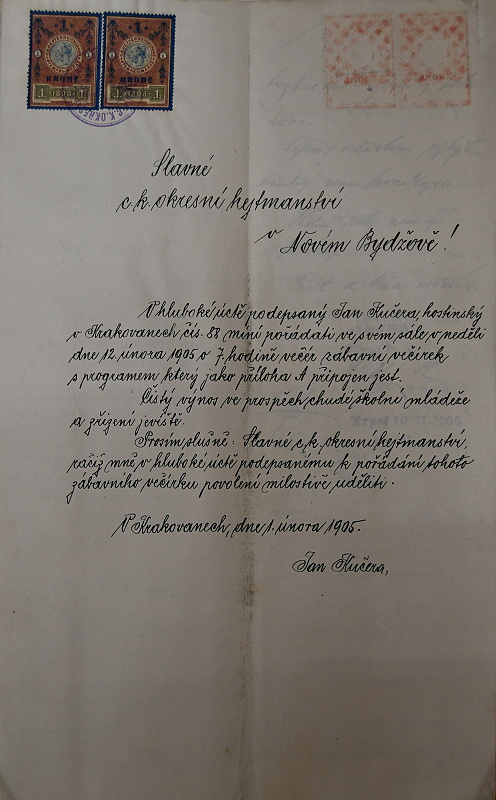 1 1
KRONE KRONE
1 · 1898 · 1 1 · 1898 · 1
C.K. OKRES
Slavné
c. k. okresní hejtmanství
v Novém Bydžově!
V hluboké úctě podepsaný Jan Kučera, hostinský
v Krakovanech čís. 88 míní pořádati ve svém sále v neděli
dne 12. února 1905 o 7. hodině večer zábavní večírek
s programem, který jako příloha A připojen jest.
Čistý výnos ve prospěch chudé školní mládeže
a zřízení jeviště.
Prosím slušně: Slavné c. k. okresní hejtmanství,
račiž mně v hluboké úctě podepsanému k pořádání tohoto
zábavního večírku povolení milostivě uděliti.
V Krakovanech, dne 1. února 1905.
Jan Kučera,